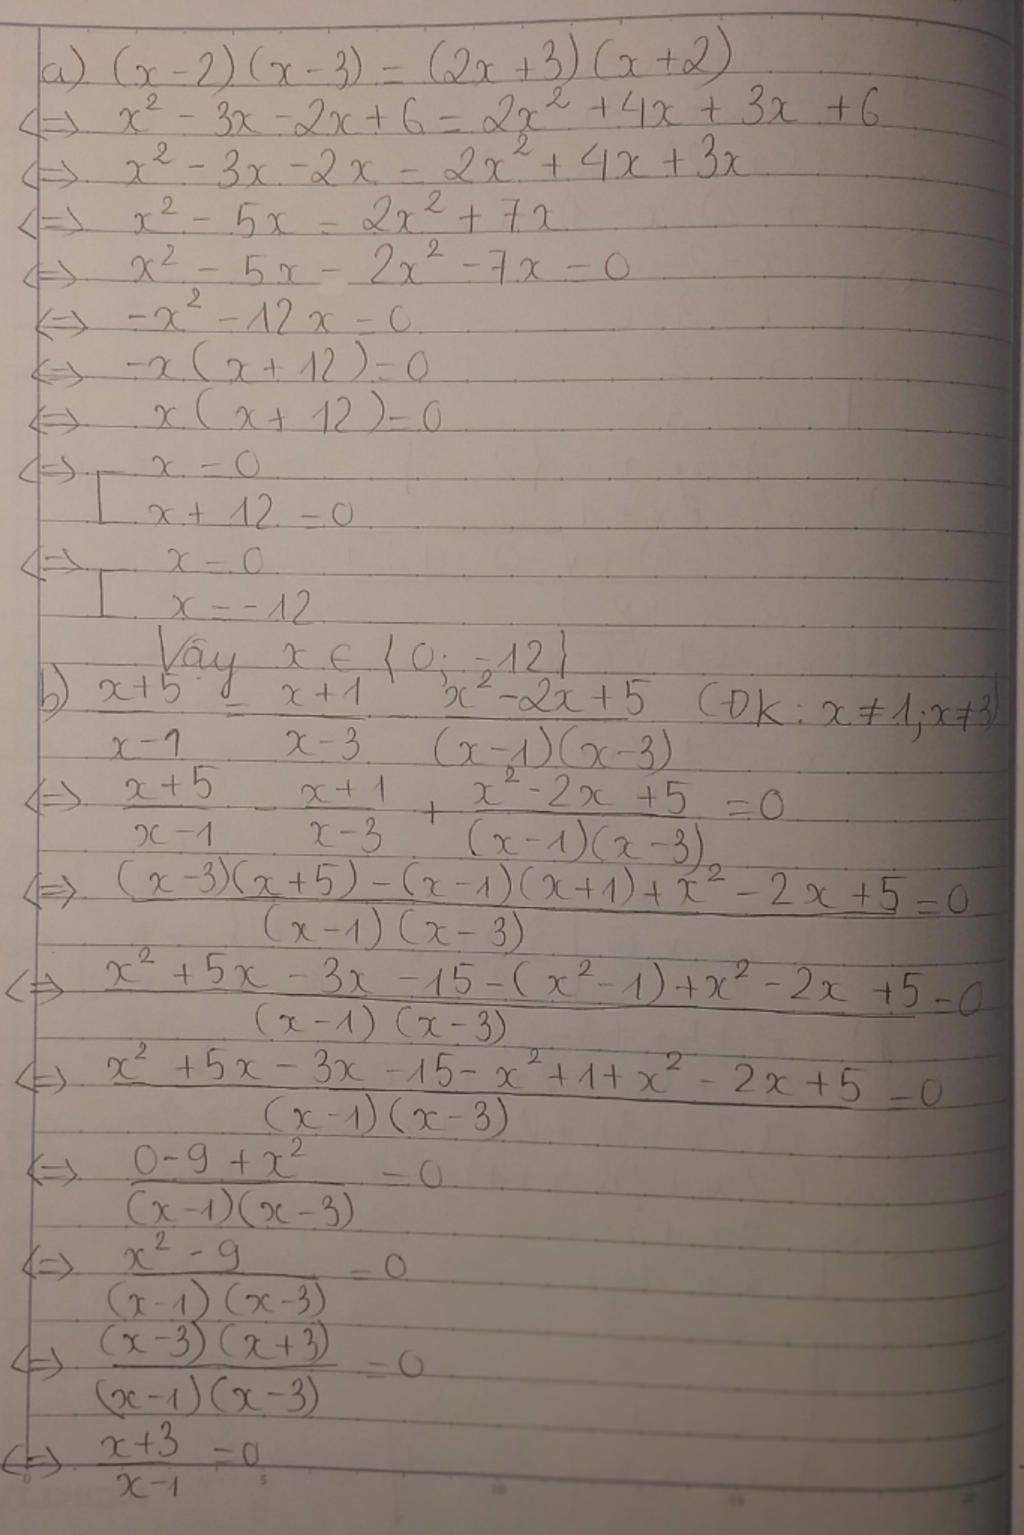 a) (x-2)(x-3) = (2x+3)(x+2)
<=> x² - 3x - 2x + 6 = 2x² + 4x + 3x + 6
<=> x² - 3x - 2x = 2x² + 4x + 3x
<=> x² - 5x = 2x² + 7x
<=> x² - 5x - 2x² - 7x = 0
<=> -x² - 12x = 0
<=> -x(x+12) = 0
<=> x(x+12) = 0
<=> [ x = 0
x + 12 = 0
<=> [ x = 0
x = -12
Vậy x ∈ {0; -12}
b) (x+5)/(x-1) = (x+1)/(x-3) - (x²-2x+5)/((x-1)(x-3)) (ĐK: x≠1; x≠3)
<=> (x+5)/(x-1) - (x+1)/(x-3) + (x²-2x+5)/((x-1)(x-3)) = 0
<=> ((x-3)(x+5) - (x-1)(x+1) + x² - 2x + 5)/((x-1)(x-3)) = 0
<=> (x² + 5x - 3x - 15 - (x²-1) + x² - 2x + 5)/((x-1)(x-3)) = 0
<=> (x² + 5x - 3x - 15 - x² + 1 + x² - 2x + 5)/((x-1)(x-3)) = 0
<=> (0 - 9 + x²)/((x-1)(x-3)) = 0
<=> (x² - 9)/((x-1)(x-3)) = 0
<=> ((x-3)(x+3))/((x-1)(x-3)) = 0
<=> (x+3)/(x-1) = 0
0 5 10 15 20